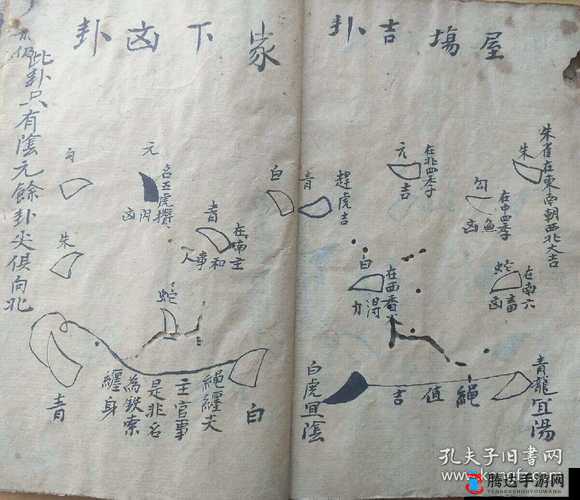 屋塲吉卦
朱雀在東南朝西北大吉
朱
勾
在中四季
凶
元
在北四季子
吉
青
趕虎吉
蛇
在南六
畜
凶
白
在西畜
力
得
青龍宜陽
繩值吉
白虎宜陰
家下凶卦
白
元
凶
勾
青
在南主
人事和
朱
蛇
白
繩纏夫
主官事
是非名
為鉄索
纏身
青
此卦只有陰元餘卦尖俱向北
孔夫子旧书网
腾达手游网